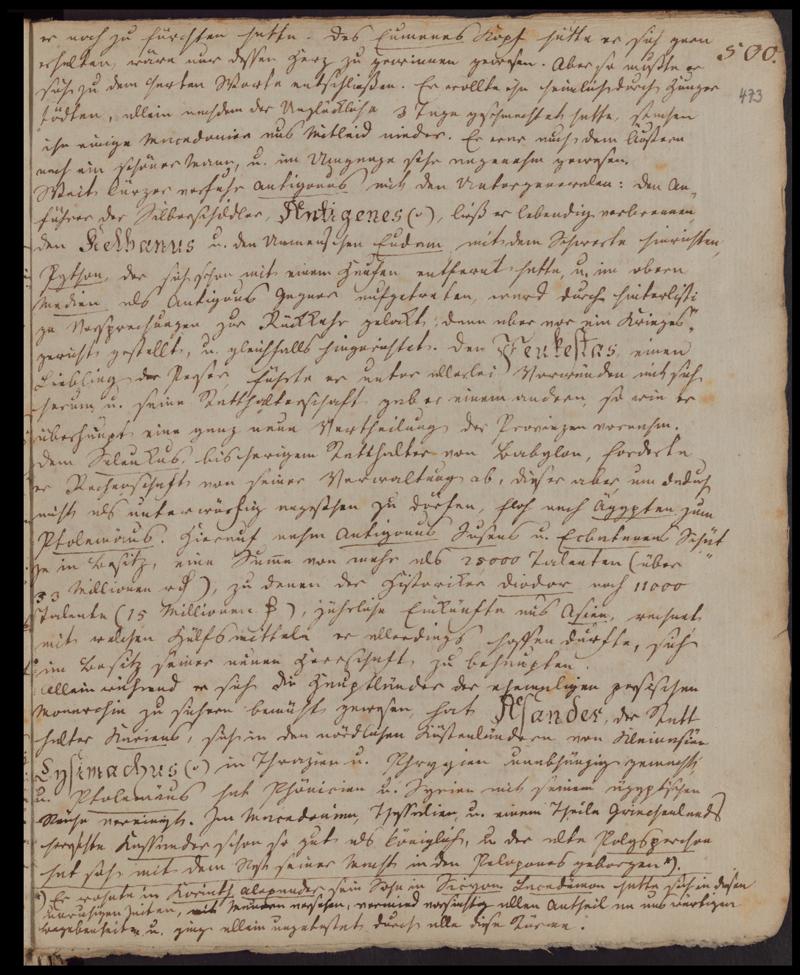 er noch zu fürchten hatte. Des Eumenes Kopf hätte er sich gern
erhalten, wäre nur dessen Herz zu gewinnen gewesen. Aber so mußte er 500.
sich zu dem harten Worte entschließen. Er wollte ihn heimlich durch Hunger 473
tödten, allein nachdem der Unglückliche 3 Tage geschmachtet hatte, stachen
ihn einige Macedonier aus Mitleid nieder. Er war auch dem äußern
nach ein schöner Mann, u. im Umgange sehr angenehm gewesen.
Weit kürzer verfuhr Antigonus mit den Untergeneralen: den An-
führer der Silberschildler, Antigenes (), ließ er lebendig verbrennen,
den Kelbanus u. den Eudem mit dem Schwerte hinrichten,
Python, der sich schon mit einem Haufen entfernt hatte, u. im obern
Medien als Antigonus Gegner aufgetreten, ward durch hinterlisti-
ge Versprechungen zur Rückkehr gelockt, dann aber vor ein Krieges-
gericht gestellt, u. gleichfalls hingerichtet. Den Peukestas, einen
Liebling der Perser, führte er unter allerlei Vorwänden mit sich
herum, u. seine Statthalterschaft gab er einem andern, so wie er
überhaupt eine ganz neue Vertheilung der Provinzen vornahm.
Dem Seleukus, bisherigem Statthalter von Babylon, forderte
er Rechenschaft von seiner Verwaltung ab, dieser aber, um dadurch
nicht als unterwürfig angesehen zu werden, floh nach Ägypten zum
Ptolemäus. Hierauf nahm Antigonus Susens u. Ecbatanens Schät-
ze in Besitz, eine Summe von mehr als 25000 Talenten (über
33 Millionen), zu denen der Historiker Diodor noch 11000
Talente (15 Millionen), jährliche Einkünfte aus Asien, rechnet
mit welchen Hülfsmitteln er allerdings hoffen durfte, sich
im Besitz seiner neuen Herrschaft zu behaupten.
Allein während er sich die Hauptländer der ehemaligen persischen
Monarchie zu sichern bemüht gewesen, hat Asander, der Statt-
halter Kariens, sich in den nördlichen Küstenländern von Kleinasien
Lysimachus () in Thrazien u. Phrygien unabhängig gemacht,
u. Ptolemäus hat Phönicien u. Syrien mit seinem ägyptischen
Reiche vereinigt. In Macedonien, Thessalien, u. einem Theile Griechenlands
herrschte Kassander schon so gut als königlich, u. der alte Polysperchon
hat sich mit dem Rest seiner Macht in den Peloponnes geborgen *).
*) Er wohnte in Korinth, Alexander, sein Sohn in Sicyon. Lacedämon hatte sich in diesen
unruhigen Zeiten, mit Mauern versehen, vermied vorsichtig allen Antheil an auswärtigen
Begebenheiten u. ging allein unangetastet durch alle diese Stürme.